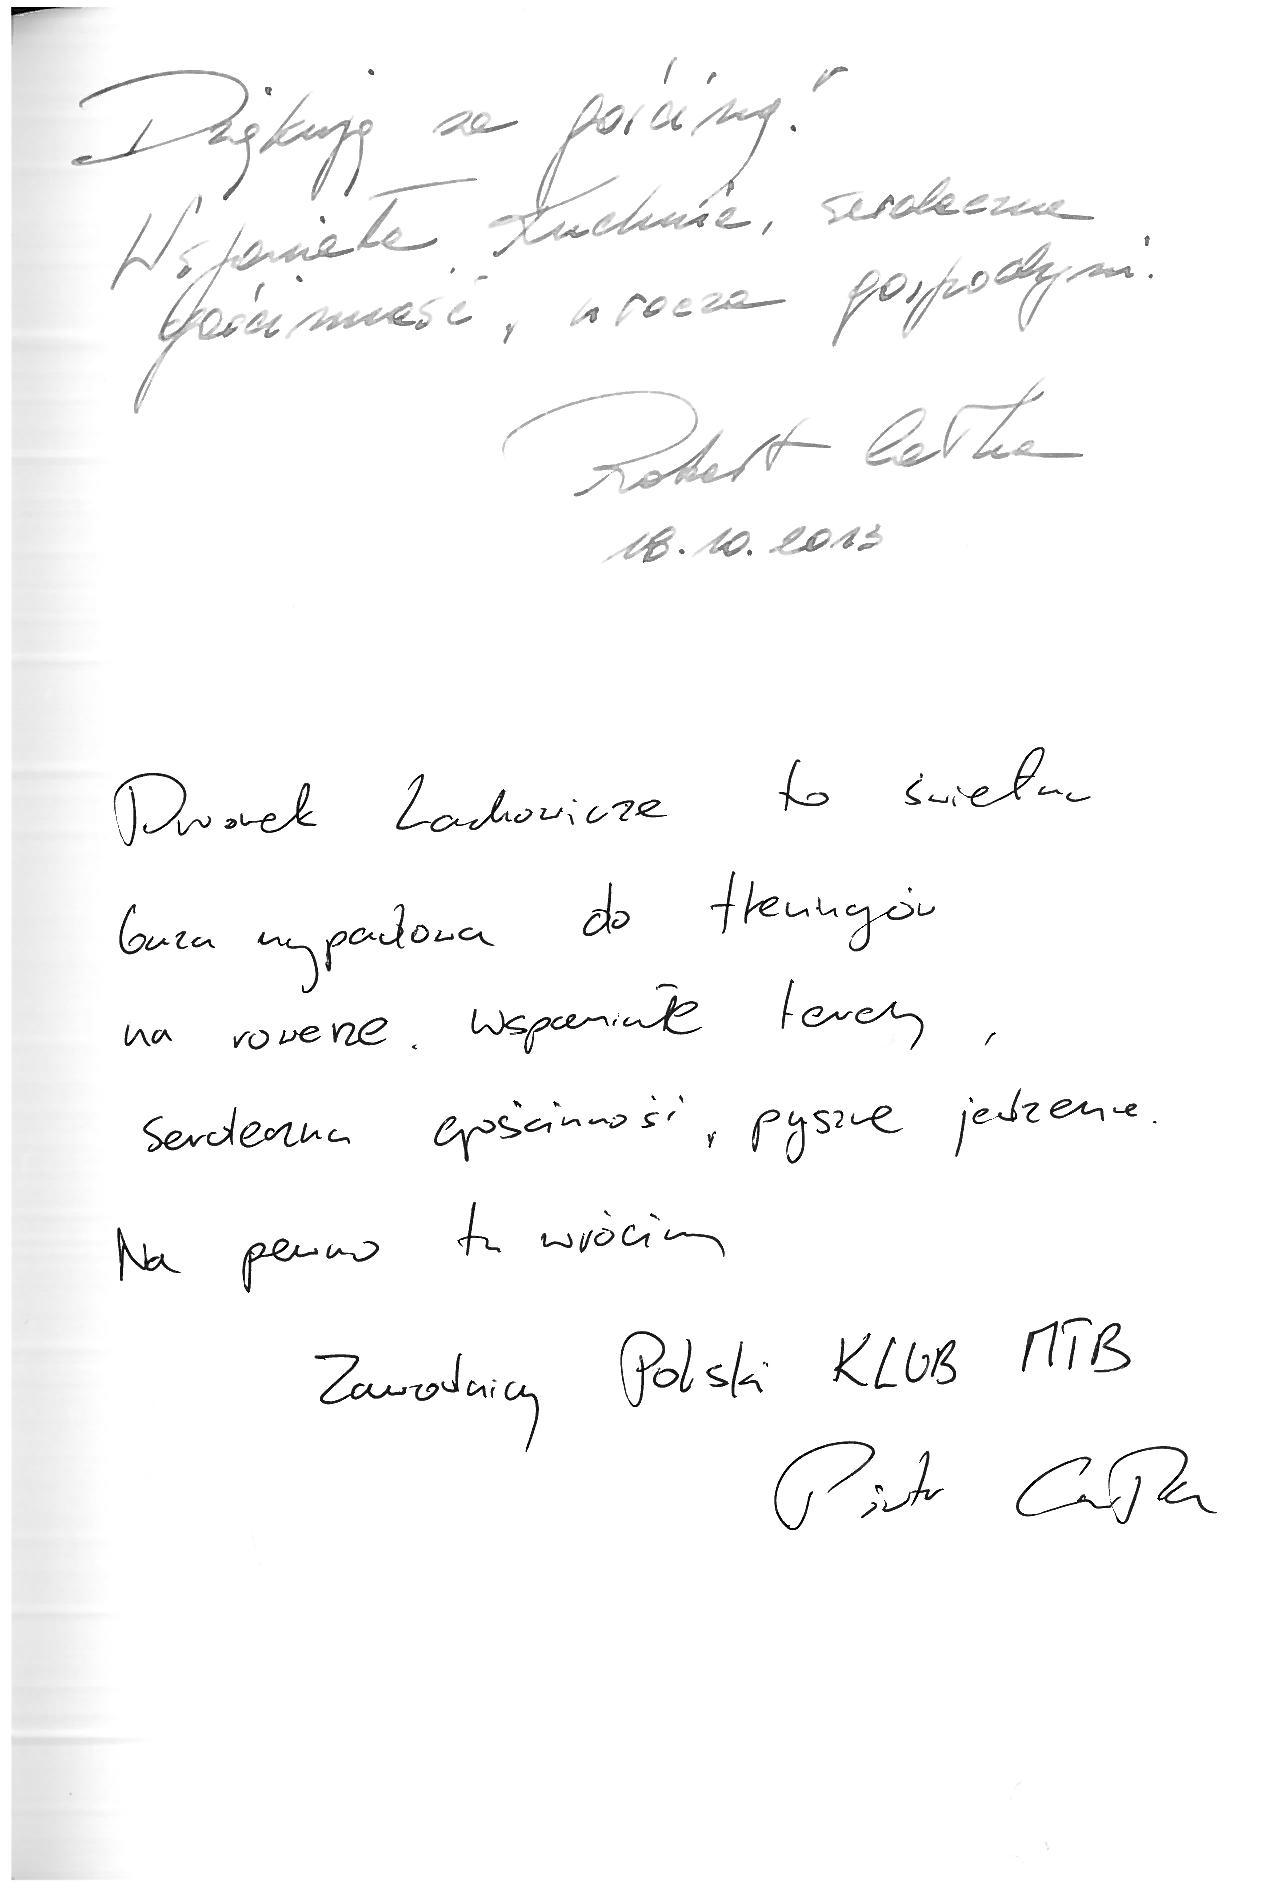 Dziękuję za gościnę!
Wspaniała Kuchnia, serdeczna
gościnność, urocza gospodyni.
Robert
18.10.2013
Dworek Lachowicze to świetna
baza wypadowa do treningów
na rowerze. Wspaniałe tereny,
serdeczna gościnność, pyszne jedzenie.
Na pewno tu wrócimy
Zawodnicy Polski KLUB MTB
Piotr